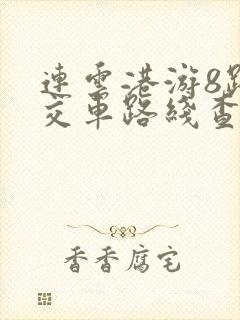 連雲港游8路
交車路綫查
香香腐宅